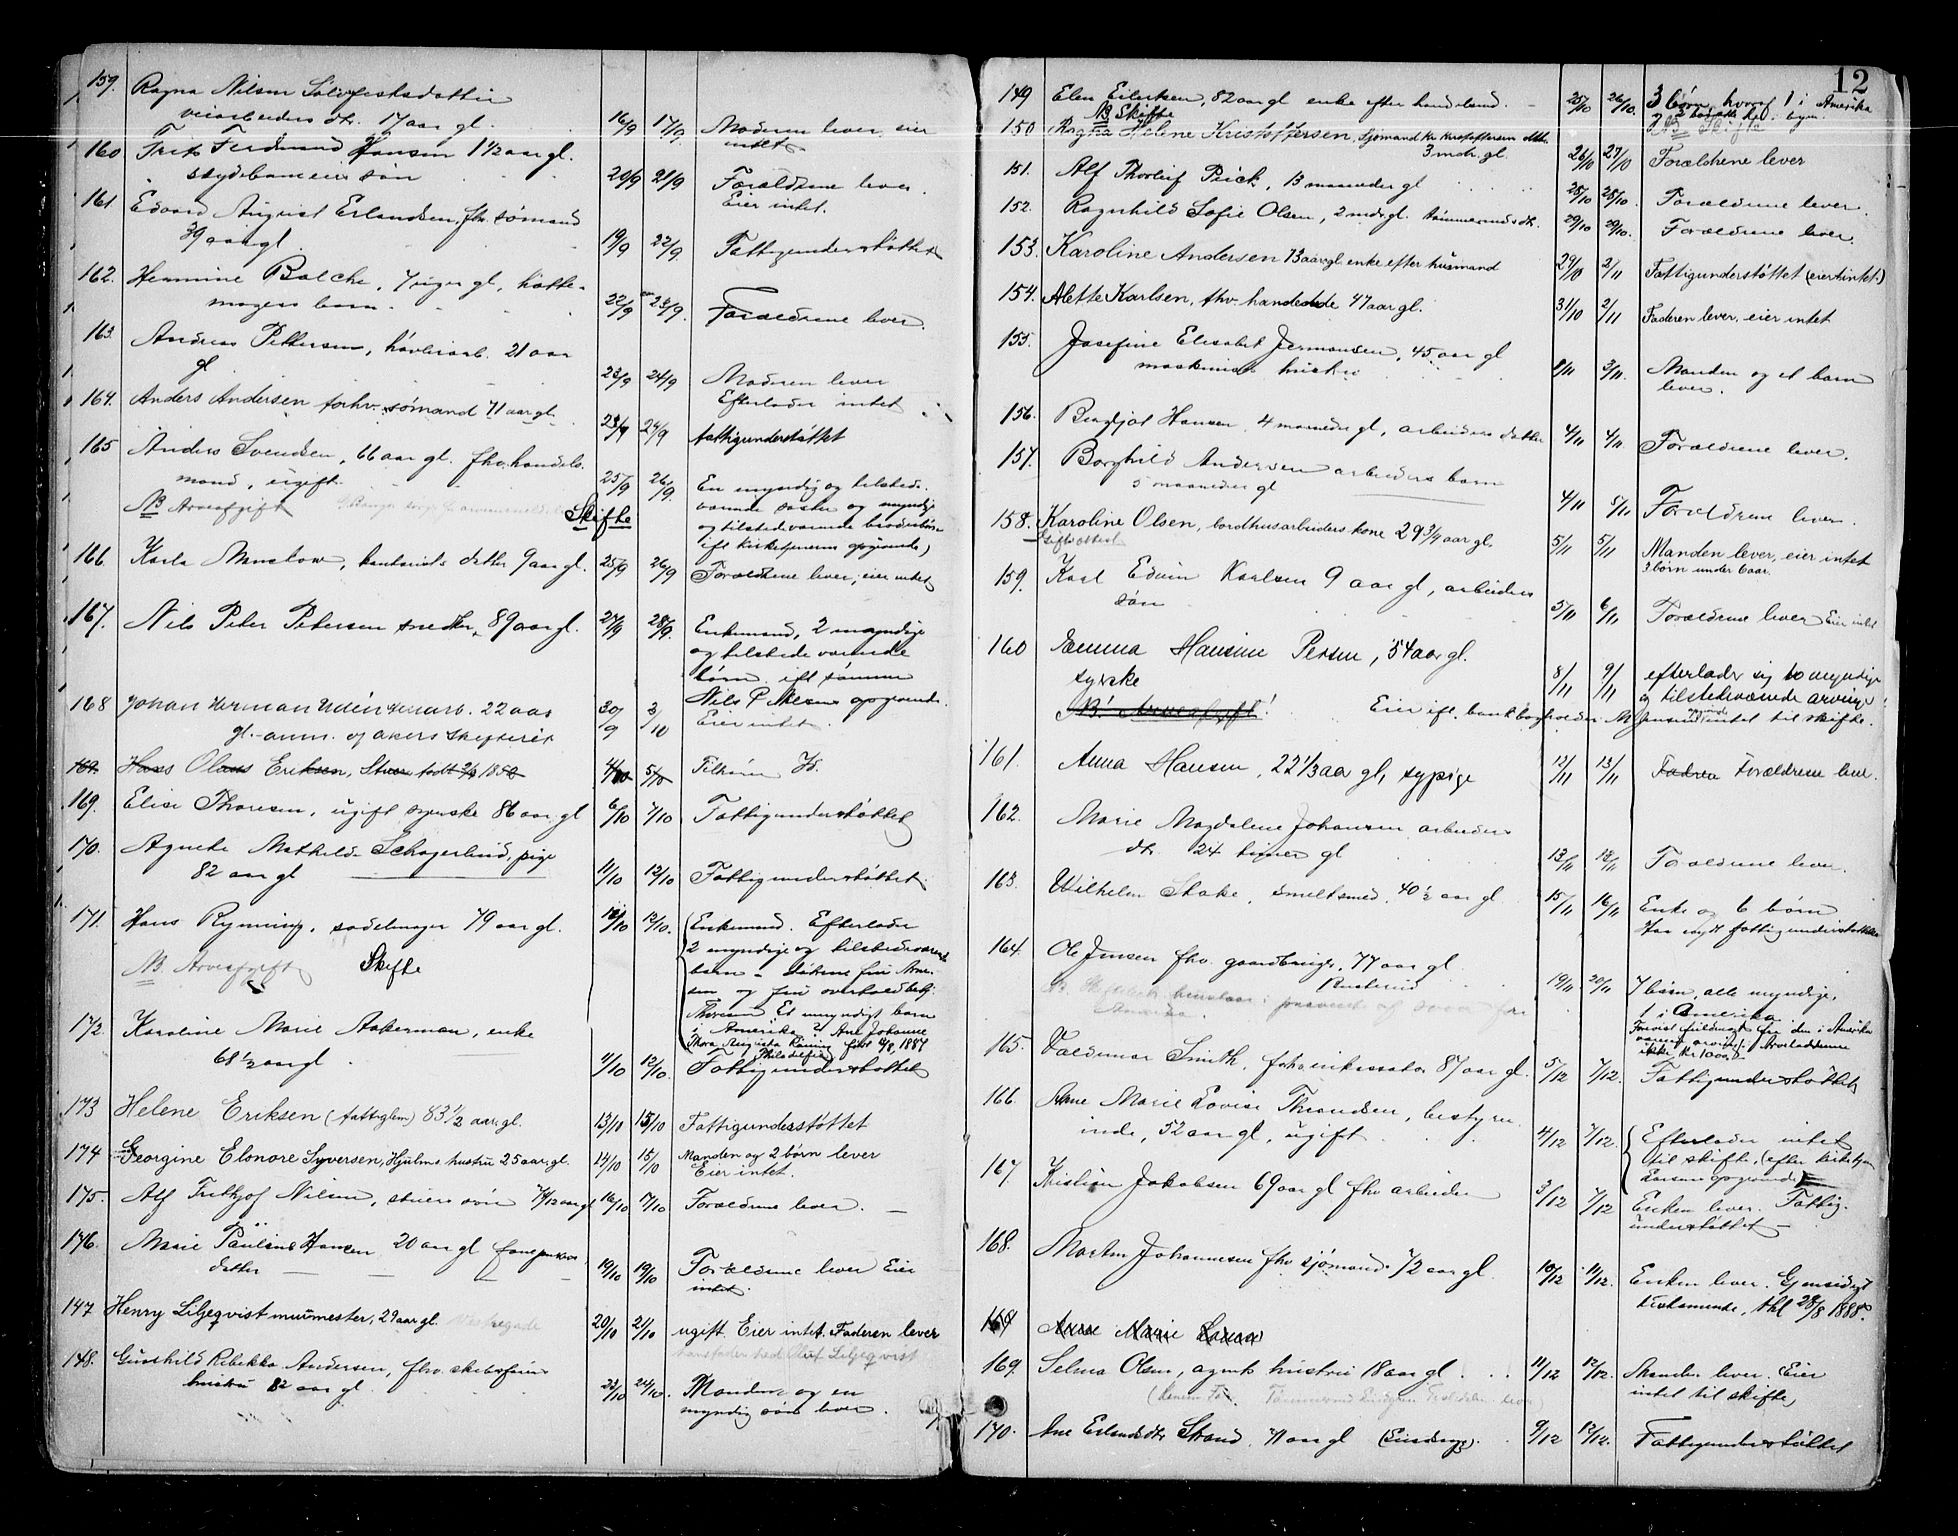 159. Ragna Nilsen
veiarbeiders dtr. 17 aar gl. 16/9 17/9 Moderen lever, eier
intet
160 Frits Ferdinand Hansen 1 1/2 aar gl.
søn 20/9 21/9 Forældrene lever.
Eier intet.
161. Edvard August Erlandsen, fhv sømand
39 aar gl. 19/9 22/9 Fattigunderstøttet
162. Hermine Balche, 7 uger gl, hatte-
magers barn. 22/9 23/9. Forældrene lever.
163. Andreas Pettersen, høvleriarb. 21 aar
gl 23/9 24/9 Moderen lever
Efterlader intet
164. Anders Andersen forhv. sømand 71 aar gl. 23/9 24/9 fattigunderstøttet
165 Anders Svendsen, 66 aar gl. fhv. handels-
mand, ugift. 25/9 26/9 En myndig og tilstede-
værende søster og myndige
NB Arveafgift Skifte og tilstedeværende
ift kirketjenerens opgivende)
166 Karla Monslow, kantorists datter 9 aar gl. 25/9 26/9 Forældrene lever, eier intet
167. Nils Peter Petersen snedker, 89 aar gl. 27/9 28/9. Enkemand, 2 myndige
og tilstedeværende
børn ift sønnen
Nils P. Nilsens opgivende.
168 Johan Herman Udén 22 aar 30/9 3/10 Eier intet
gl. anm. af Akers skifteret
169. Hans Olaus Eriksen, født 1850 4/10 5/10 Tilhører
169. Elise Thoresen, ugift syerske 86 aar gl 6/10 7/10 Fattigunderstøttet
170. Agnethe Mathilde Schagerlind, pige
82 aar gl 11/10 12/10 Fattigunderstøttet.
171. Hans Rynning, sadelmager 79 aar gl. 12/10 12/10. Enkemand. Efterlader
2 myndige og tilstedeværende
NB. Arveafgift Skifte børn
sen og fru
Thoresen Et umyndigt barn
i Amerika Ane Johanne
Thora Augusta Rÿning født 4/8, 1887
Philadelfia
172 Karoline Marie Aakerman, enke
68 1/2 aar gl 11/10 12/10. Fattigunderstøttet
173 Helene Eriksen (fattiglem) 83 1/2 aar gl. 13/10 15/10 Fattigunderstøttet
174 Georgine Elonore Syversen, Hjulms. hustru 25 aar gl. 14/10 15/10 Manden og 2 børn lever
Eier intet.
175. Alf Frithjof Nilsen, stuers søn aar gl 16/10 17/10 Forældrene lever. —
176. Marie Pauline Hansen 20 aar gl
datter 19/10 19/10 Forældrene lever Eier
intet.
147 Henry Liljeqvist murmester, 29 aar gl. 20/10 21/10 ugift. Eier intet. Faderen lever
Oluf Liljeqvist
148. Gunhild Rebekka Andersen, fhv. skibsførers
hustru 82 aar gl. 23/10 24/10. Manden og en
myndig søn lever.
12
149 Elen Eilertsen, 82 aar gl enke efter handelsmd. 25/10 26/10. 3 børn, hvoraf 1 i Amerika
NB Skifte
150 Ragna Helene Kristoffersen, Sjømand Kr. Kristoffersens dtr.
3 mdr. gl. 26/10 27/10 Forældrene lever
151. Alf Thorleif Peick, 13 maaneder gl 25/10 28/10. Forældrene lever.
152. Ragnhild Sofie Olsen, 2 mdr. gl. tømmermds dtr. 29/10 29/10. Forældrene lever.
153. Karoline Andersen 73 aar gl. enke efter husmand 29/10 2/11 Fattigunderstøttet (eier intet.)
154. Alette Karlsen, fhv. handlende 47 aar gl. 31/10 2/11 Faderen lever, eier intet
155. Josefine Elisabet Jermansen, 45. aar gl
maskinists hustru 2/11 3/11. Manden og et barn
lever.
156. Bergljot Hansen 4 maaneder gl, arbeiders datter 4/11 4/11 Forældrene lever.
157. Borghild Andersen arbeiders barn
5 maaneder gl 4/11 5/11 Forældrene lever.
158. Karoline Olsen, bordhusarbeiders kone 29 3/4 aar gl. 5/11 5/11 Manden lever, eier intet
Skifteattest 3 børn under 6 aar.
159. Karl Edvin Karlsen 9 aar gl, arbeiders
søn 5/11 6/11 Forældrene lever Eier intet
160 Emma Hansine Persen, 54 aar gl.
syerske 8/11 9/11 efterlader sig to myndige
og tilstedeværende arvinger
NB. Arveafgift! Eier ift. bankbogholder M Jensens opgivende intet til skifte.
161. Anna Hansen, 22 1/3 aar gl, sypige 12/11 13/11 Fadren Forældrene lever.
162. Marie Magdalene Johansen arbeiders
dtr. 24 timer gl 13/11 18/11 Forældrene lever.
163. Wilhelm Stake, smeltsmed, 40 1/2 aar gl 15/11 16/11 Enke og 6 børn
Har nydt fattigunderstøttelse
164. Ole Jensen fhv. gaardbruger, 77 aar gl 19/11 20/11 7 børn, alle myndige,
1 i Amerika.
Amerika. Forevist fuldmagt fra den i Amerika
værende arving. Arveladeren
ikke Kr 1000.
165. Valdemar Smith, 87 aar gl. 5/12 7/12. Fattigunderstøttet
166. Ane Marie Lovise Throndsen, bestyrer-
inde, 52 aar gl, ugift 4/12 7/12. Efterlader intet
til skifte, (efter kirketjener
Larsens opgivende)
167. Kristian Jakobsen 69 aar gl fhv arbeider 3/12 7/12 Enken lever. Fattig-
understøttet —
168. Martin Johannesen fhv sjømand 72 aar gl. 10/12 11/12. Enken lever. Gjensidigt
testamente, thl 28/8 1888.
169 Anne Marie
169. Selma Olsen, agents hustru 18 aar gl. 11/12 12/12. Manden lever. Eier
intet til skifte,
170. Ane Erlandsdtr Strand, 71 aar gl 9/12 12/12. Fattigunderstøttet